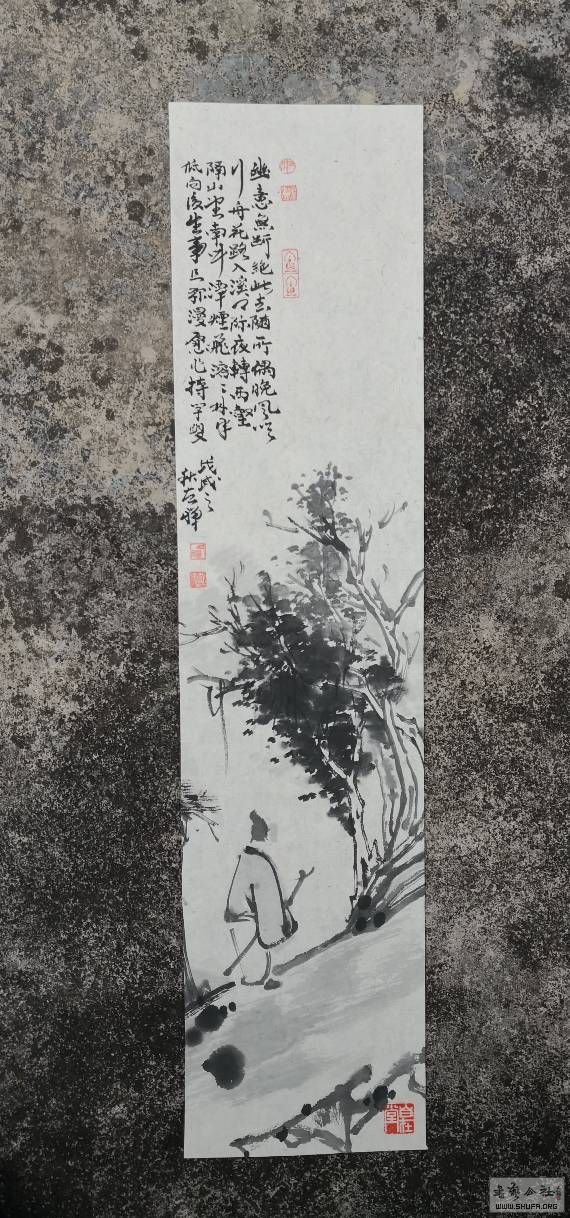 幽意無断絕此去随所偶晚风吹
行舟花路入溪口际夜轉西壑
隔山望南斗潭煙飛溶々林月
低向後生事且弥漫愿为持竿叟
戊戌之
秋
WWW.SHUFA.ORG